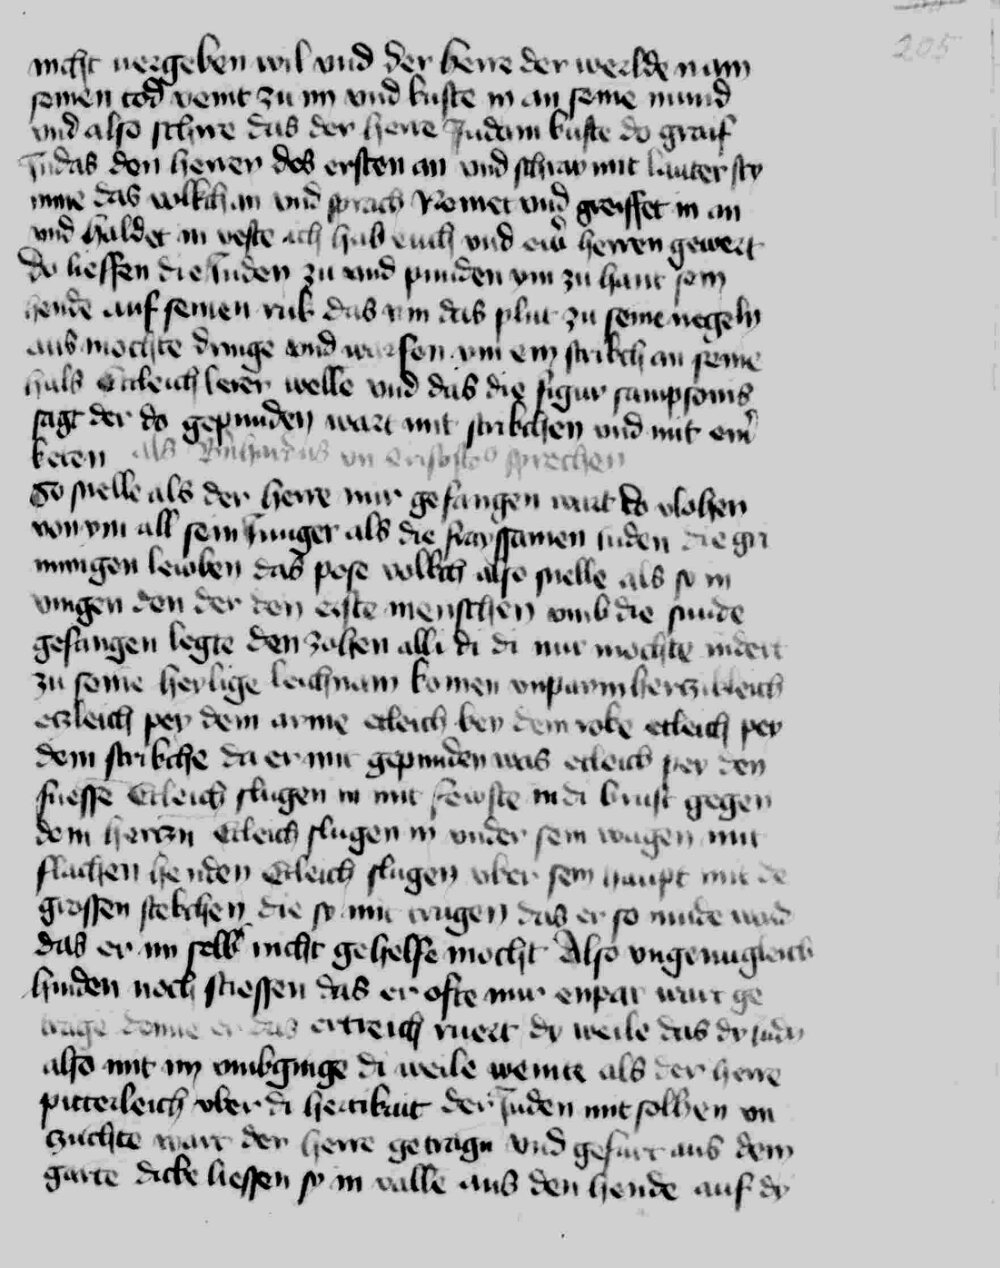 205
nicht vergeben wil vnd der herre der werlde nam
seinen tod veint zu im vnd kuste in an seine mund
vnd also schire das der herre Judam kuste do graif
Judas den herren des ersten an vnd schray mit lauter sty
mme das volkch an vnd sprach Komet vnd greiffet in an
vnd haldet in veste ich hab euch vnd ewr herren gewert
do lieffen die Juden zu vnd punden ym zu hant sein
hende auf seinen ruk das ym das plut zu seine negeln
aus mochte dringe vnd wurfen ym ein strikch an seine
hals Etleich welle vnd das die figur sampsonis
sagt der do gepunden wart mit strikchen vnd mit ein
keten als sprechen
So snelle als der herre nur gefangen wart do vlohen
von ym all sein Junger als die frayssamen iuden die gri
mmigen lewben das pose volkch also snelle als sy in
vingen den der den erste menschen vmb die sunde
gefangen legte den zohen alli di di nur mochte indert
zu seine heylige leichnam komen vnparmhertzikleich
etzleich pey dem arme etleich bey dem roke etleich pey
dem strikche da er mit gepunden was etleich pey den
fuesse Etleich slugen in mit fewste in di brust gegen
dem hertzn Etleich slugen in vnder sein wagen mit
flachen henden Etleich slugen vber sein haupt mit de
grossen stekchen die sy mit trugen das er so mude ward
das er im selb nicht gehelfe mocht Also vngenugleich
hinden noch stiessen das er ofte mur enpar wart ge
trage denne er das ertreich ruert dy weile das dy iudn
also mit im vmbginge di weile weinte als der herre
pitterleich vber di hertikait der Juden mit solhen vn
czuchte wart der herre getragn vnd gefurt aus dem
garte dicke liessen sy in valle aus den hende auf dy